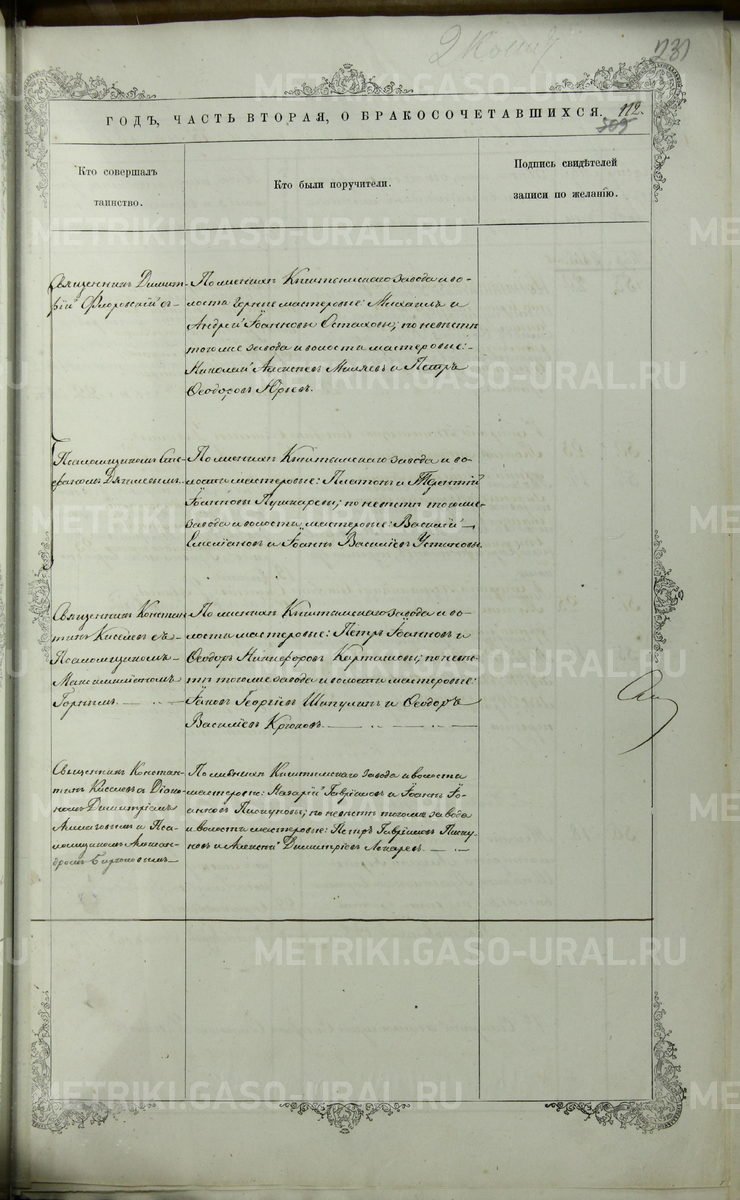 ГОДЪ, ЧАСТЬ ВТОРАЯ, О БРАКОСОЧЕТАВШИХСЯ.
112.
Кто совершалъ
таинство.
Кто были поручители.
Подпись свидѣтелей
записи по желанію.
Священникъ Димит-
рій Флоровскій съ
По женихѣ Кыштымскаго завода и во-
лости горные мастеровые: Михаилъ и
Андрей Іоанновы Остаховы; по невѣстѣ
тогоже завода и волости мастеровые:
Николай Алексѣевъ Миляевъ и Петръ
Ѳеодоровъ Юрьевъ.
Псаломщикомъ
По женихѣ Кыштымскаго завода и во-
лости мастеровые: Платонъ и Терентій
Іоанновы Пушкаревы; по невѣстѣ тогоже
завода и волости мастеровые: Василій
Емеліановъ и Іоаннъ Василіевъ Устиновы.
Священникъ Констан-
тинъ Киселевъ съ
Псаломщикомъ
Максимиліаномъ
Горнымъ.
По женихѣ Кыштымскаго завода и во-
лости мастеровые: Петръ Іоанновъ и
Ѳеодоръ Никифоровъ Карташовы; по невѣс-
тѣ тогоже завода и волости мастеровые:
Іаковъ Георгіевъ Шапулинъ и Ѳеодоръ
Василіевъ Крюковъ.
Священникъ Констан-
тинъ Киселевъ съ Діако-
номъ Димитріемъ
и Пса-
ломщикомъ Алексан-
дромъ Бирюковымъ
По женихѣ Кыштымскаго завода и волости
мастеровые: Назарій Гавріиловъ и Іоаннъ Іо-
анновъ Пискуновы; по невѣстѣ тогоже завода
и волости мастеровые: Петръ Гавріиловъ Писку-
новъ и Алексѣй Димитріевъ Локаревъ.
METRIKI.GASO-URAL.RU